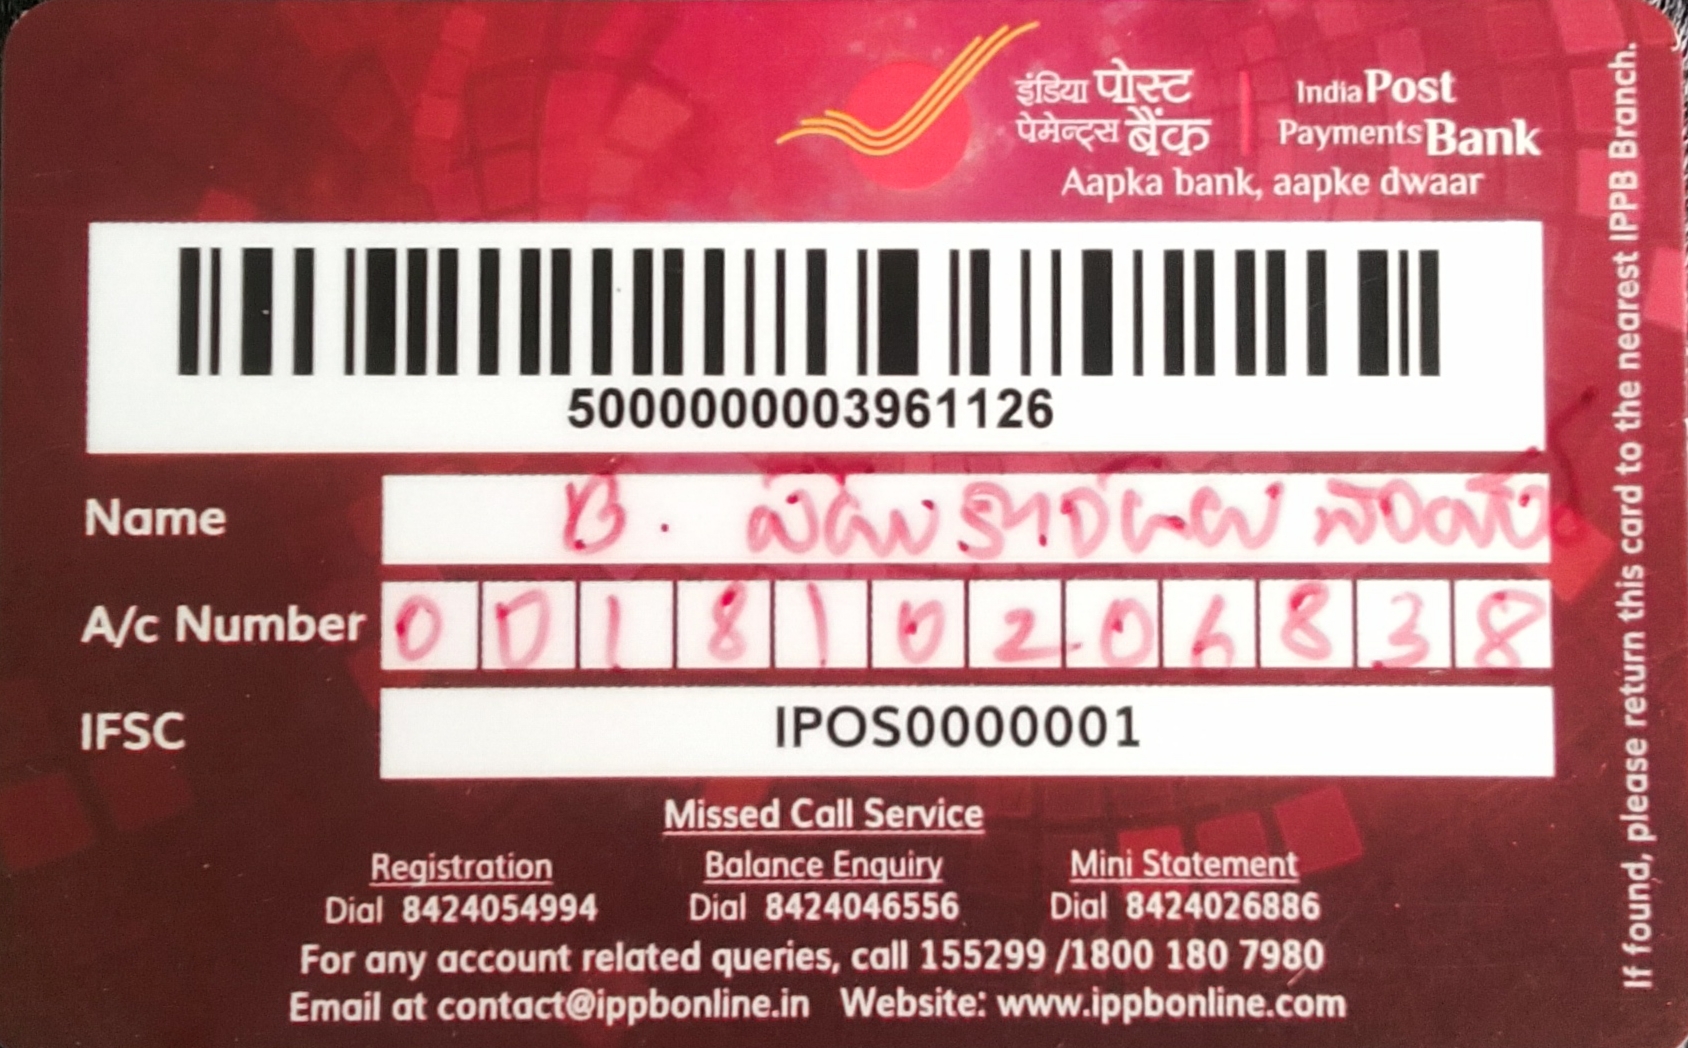 इंडिया पोस्ट
पेमेन्ट्स बैंक
IndiaPost
Payments Bank
Aapka bank, aapke dwaar
5000000003961126
Name B.
A/c Number 001810206838
IFSC IPOS0000001
Missed Call Service
Registration Balance Enquiry Mini Statement
Dial 8424054994 Dial 8424046556 Dial 8424026886
For any account related queries, call 155299 /1800 180 7980
Email at contact@ippbonline.in Website: www.ippbonline.com
If found, please return this card to the nearest IPPB Branch.